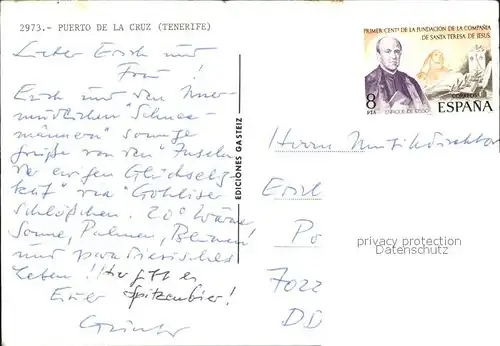 2973.- PUERTO DE LA CRUZ (TENERIFE)
Lieber Erich und
Frau!
Euch und den
"Schnee-
männern" sonnige
Grüße von den "Inseln
der ewigen Glückselig-
keit" via "Gohliser
Schlößchen. 20° Wärme
Sonne, Palmen, Blumen
und paradiesisches
Leben! Hier gibt es
Euer Spitzenbier!
Günter
EDICIONES GASTEIZ
PRIMER CENTº DE LA FUNDACION DE LA COMPAÑIA
DE SANTA TERESA DE JESUS
CORREOS
8
PTA
ENRIQUE DE OSSO
ESPAÑA
Herrn Musikdirektor
Erich
Po
7022
DD
privacy protection
Datenschutz